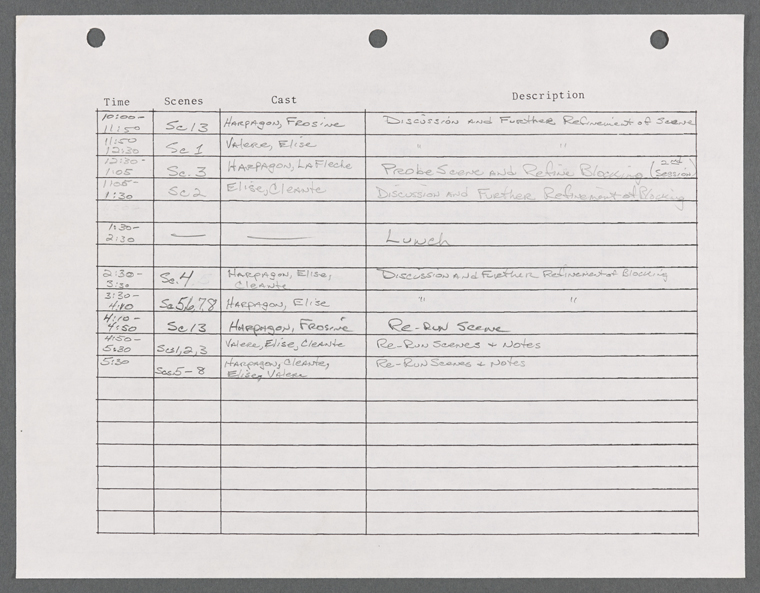 Time Scenes Cast Description
10:00- Harpagon, Frosine Discussion and Further Refinement of Scene
11:50 Sc 13
11:50 Valere, Elise " "
12:30 Sc 1
12:30- Harpagon, LaFleche Probe Scene and Refine Blocking (2nd
1:05 Sc. 3 Session)
1:05- Elise, Cleante Discussion and Further Refinement of Blocking
1:30 Sc. 2
1:30-
2:30 — — Lunch
2:30- Sc. 4 Harpagon, Elise, Discussion and Further Refinement of Blocking
3:30 Cleante
3:30- " "
4:10 Sc 5,6,7,8 Harpagon, Elise
4:10-
4:50 Sc 13 Harpagon, Frosine Re-Run Scene
4:50- Valere, Elise, Cleante Re-Run Scenes + Notes
5:30 Scs 1, 2, 3
5:30 Harpagon, Cleante, Re-Run Scenes + Notes
Scs. 5-8 Elise, Valere